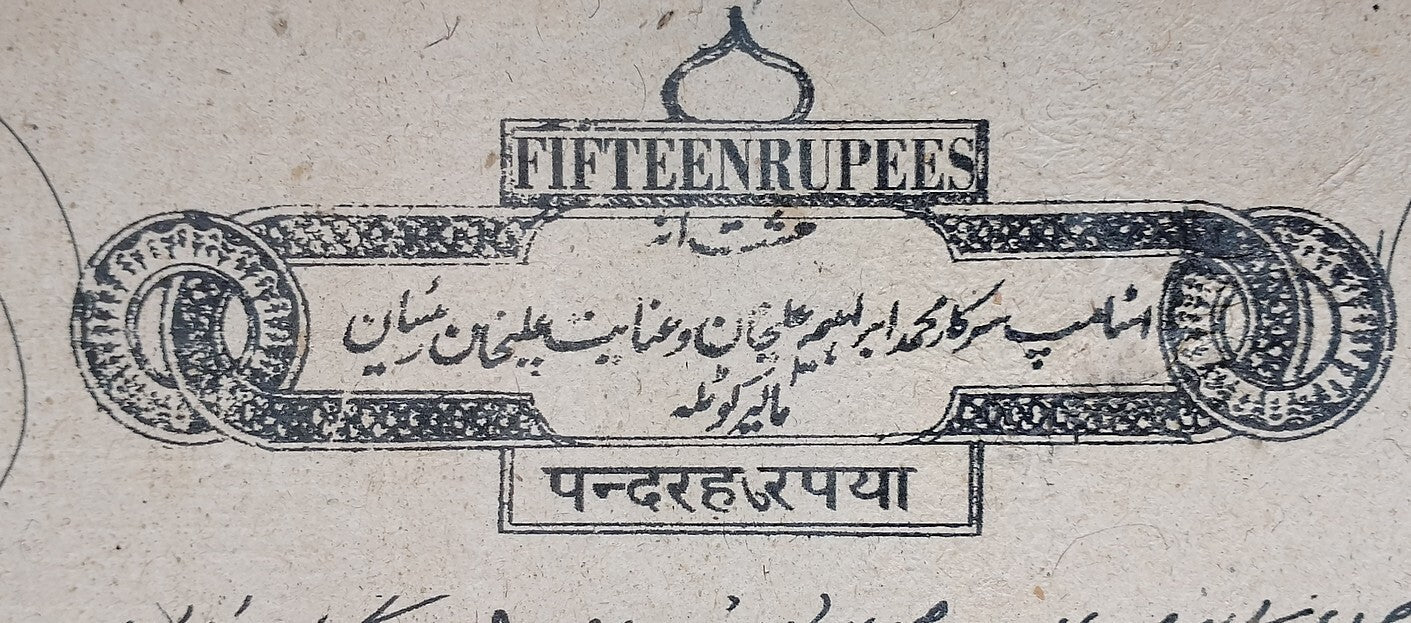 FIFTEEN RUPEES
ہشت آنہ
اسٹامپ سرکار محمد ابراہیم علیخان و عنایت علیخان رئیسان
مالیر کوٹلہ
पन्दरह रपया